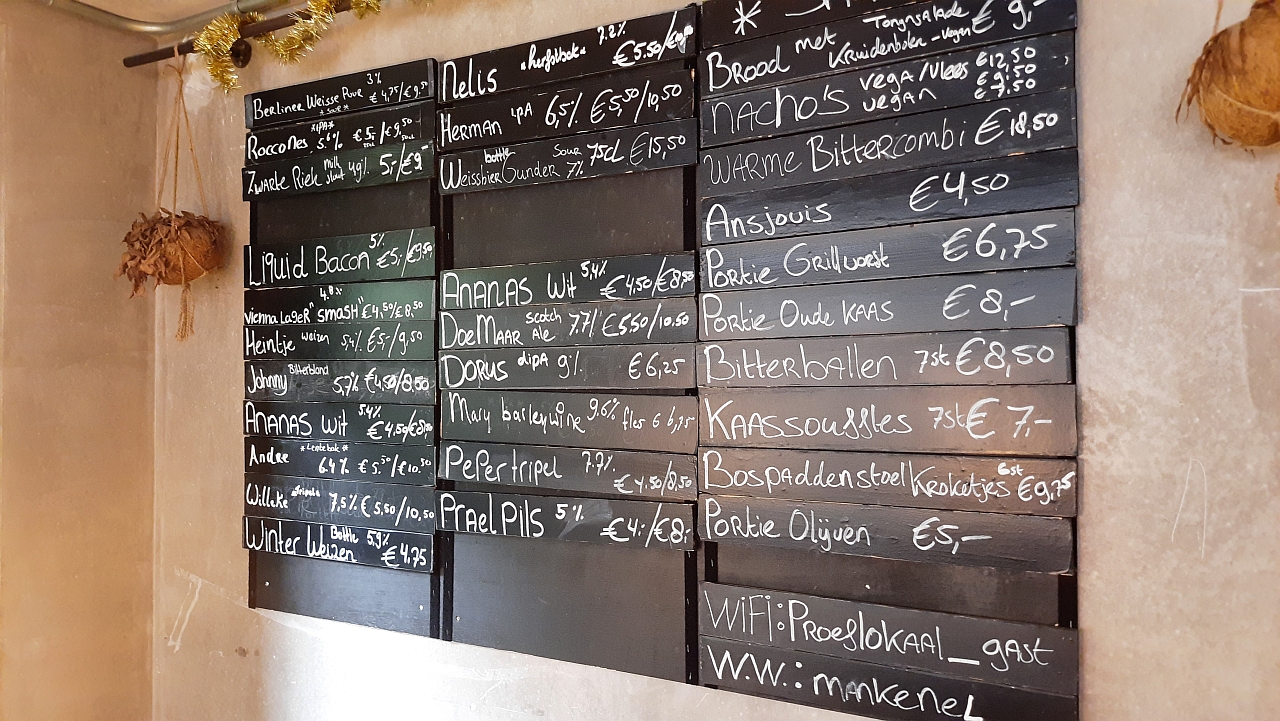 Berliner Weisse Puur 3% € 4,75/€ 9,50
* SOUR *
Roccones *IPA* 5.6% €5,-/€9,50
Zwarte Riek milk stout 4,9% 5,-/€9,-
Liquid Bacon 5% €5,-/€9,50
Vienna Lager "SMASH" 4.8% €4,50/€8,50
Heintje weizen 5,4% €5-/9,50
Johnny Bitterblond 5,7% €4,50/8,50
Ananas Wit 5,4% €4,50/€8,50
Andre *Lentebok* 6,4% €5,50/€10,50
Willeke Tripel 7,5% €5,50/10,50
Winter Weizen Bottle 5,9% €4,75
Nelis "herfstbok" 7.2% €5.50/
Herman IPA 6,5% €5,50/10,50
Weissbier Gunder bottle Sour 7% 75cl €15,50
Ananas Wit 5,4% €4,50/€8,50
DoeMaar Scotch Ale 7.7% €5,50/10.50
Dorus dIPA 9% €6,25
Mary barleywine 9.6% fles € 6,75
Pepertripel 7.7% €4.50/8,50
Prael Pils 5% €4,-/€8,-
*
Brood met Tonijnsalade € 9,-
Kruidenboter -vegan
Nacho's vega/vlees €12,50
vegan €9,50
€7,50
Warme Bittercombi €18,50
Ansjovis €4,50
Portie Grillworst €6,75
Portie Oude Kaas €8,-
Bitterballen 7st €8,50
Kaassouffles 7st € 7,-
Bospaddenstoel Kroketjes 6st €9,75
Portie Olijven €5,-
WiFi: Proeflokaal_gast
W.W.: mankenel